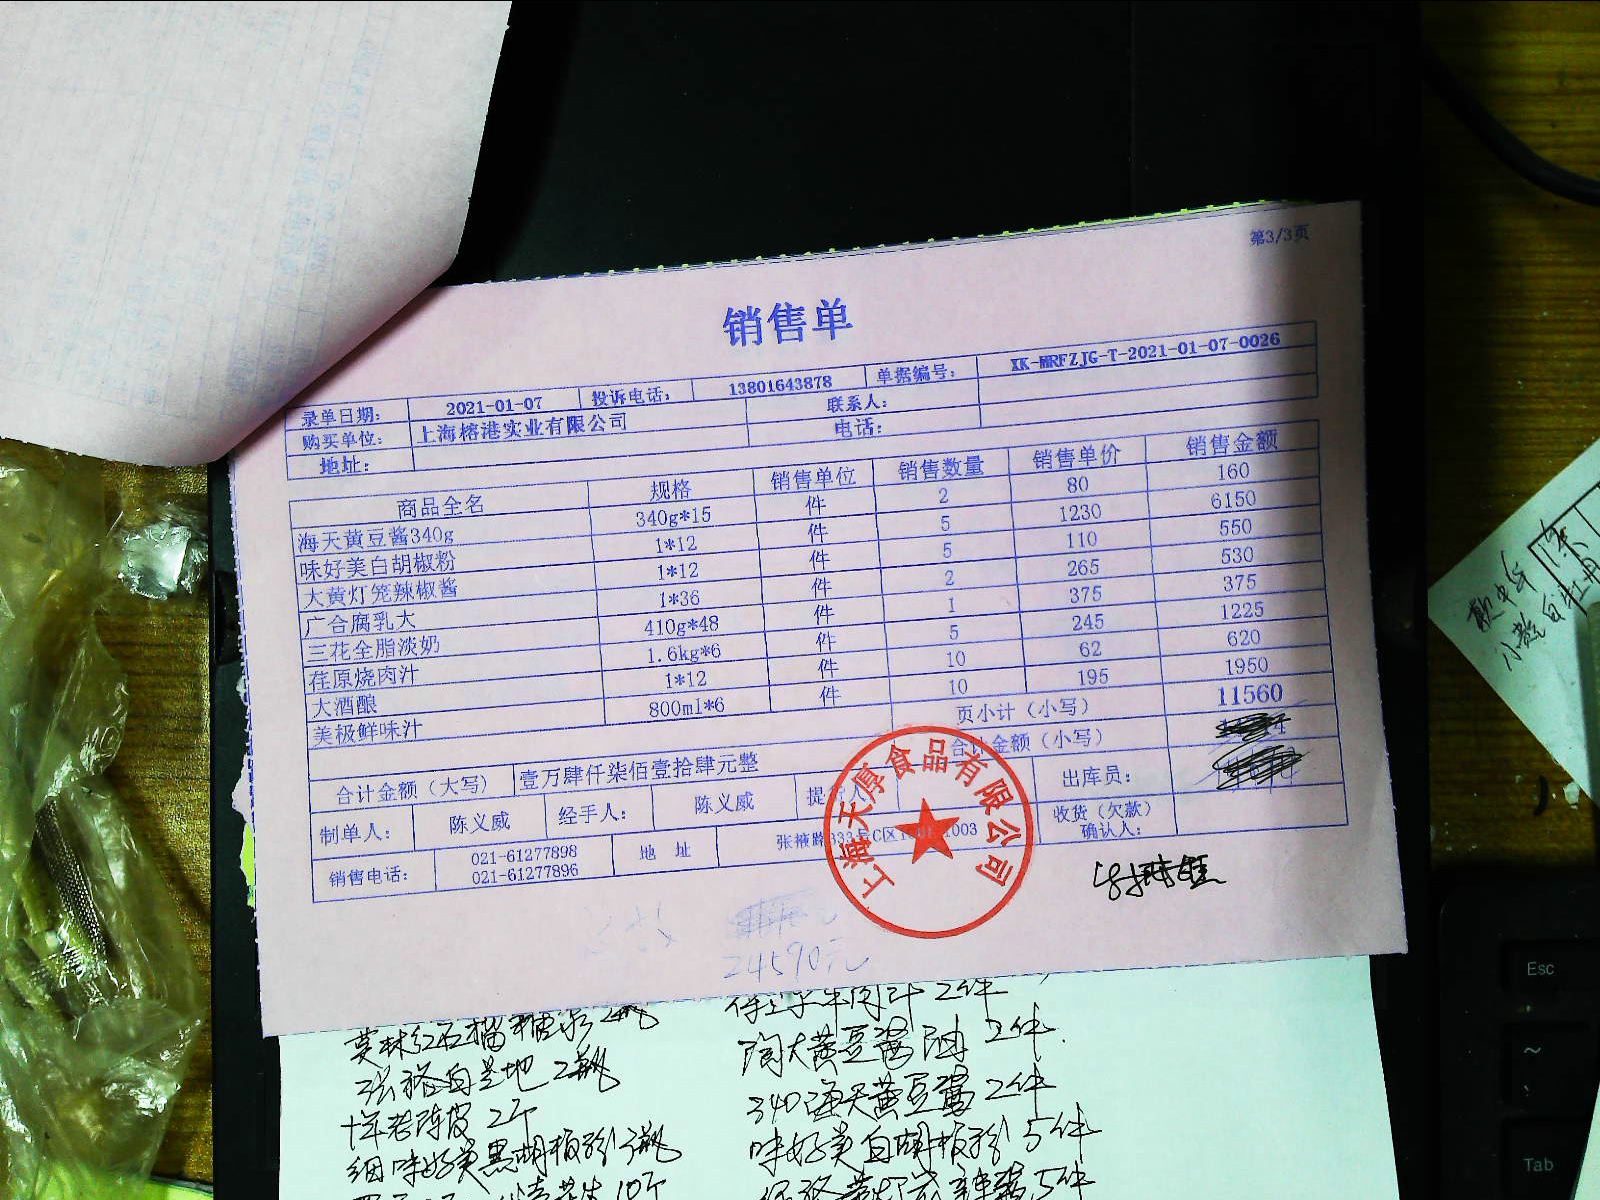 第3/3页
销售单
录单日期： 2021-01-07 投诉电话： 13801643878 单据编号： XK-MRFZJG-T-2021-01-07-0026
购买单位： 上海榕港实业有限公司 联系人：
地址： 电话：
商品全名 规格 销售单位 销售数量 销售单价 销售金额
海天黄豆酱340g 340g*15 件 2 80 160
味好美白胡椒粉 1*12 件 5 1230 6150
大黄灯笼辣椒酱 1*12 件 5 110 550
广合腐乳大 1*36 件 2 265 530
三花全脂淡奶 410g*48 件 1 375 375
荏原烧肉汁 1.6kg*6 件 5 245 1225
大酒酿 1*12 件 10 62 620
美极鲜味汁 800ml*6 件 10 195 1950
页小计（小写） 11560
合计金额（大写） 壹万肆仟柒佰壹拾肆元整 合计金额（小写）
制单人： 陈义威 经手人： 陈义威 出库员：
销售电话： 021-61277898 地 址 收货（欠款）
021-61277896 确认人：
上海天厚食品有限公司
24590元
十年老陈皮 2个
细味好美黑胡椒粉
陶大黄豆酱 2件
340海天黄豆酱 2件
味好美白胡椒粉 5件